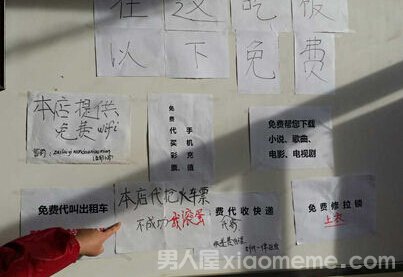 在这吃饭
以下免费
本店提供
免费wifi
免费
代买彩票
手机充值
免费帮您下载
小说、歌曲、
电影、电视剧
免费代叫出租车
本店代抢火车票
不成功我滚蛋
费代收快递
免费修拉锁
上衣
男人屋xiaomeme.com